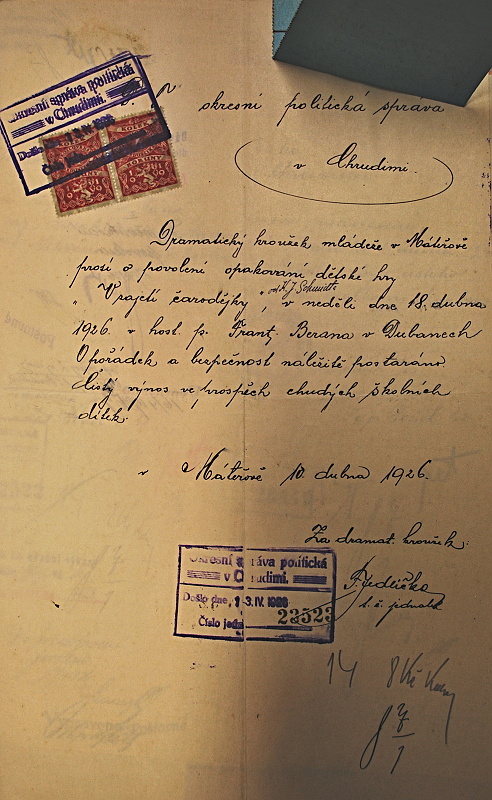 Okresní správa politická
v Chrudimi.
Došlo
okresní politická správa
v Chrudimi.
KOLEK KOLEK
KORUNY
1919
Dramatický kroužek mládeže v Mateřově
prosí o povolení opakování dětské hry
od K. J. Schmidt
"V zajetí čarodějky", v neděli dne 18. dubna
1926. v host. p. Frant. Berana v Dubanech
O pořádek a bezpečnost náležitě postaráno.
Čistý výnos ve prospěch chudých školních
dítek.
v Mateřově 10. dubna 1926.
Za dramat. kroužek:
Okresní správa politická
v Chrudimi.
Došlo dne, 13. IV. 1926
Číslo jedn. 22523
t. č. jednatel
14 8 Kč